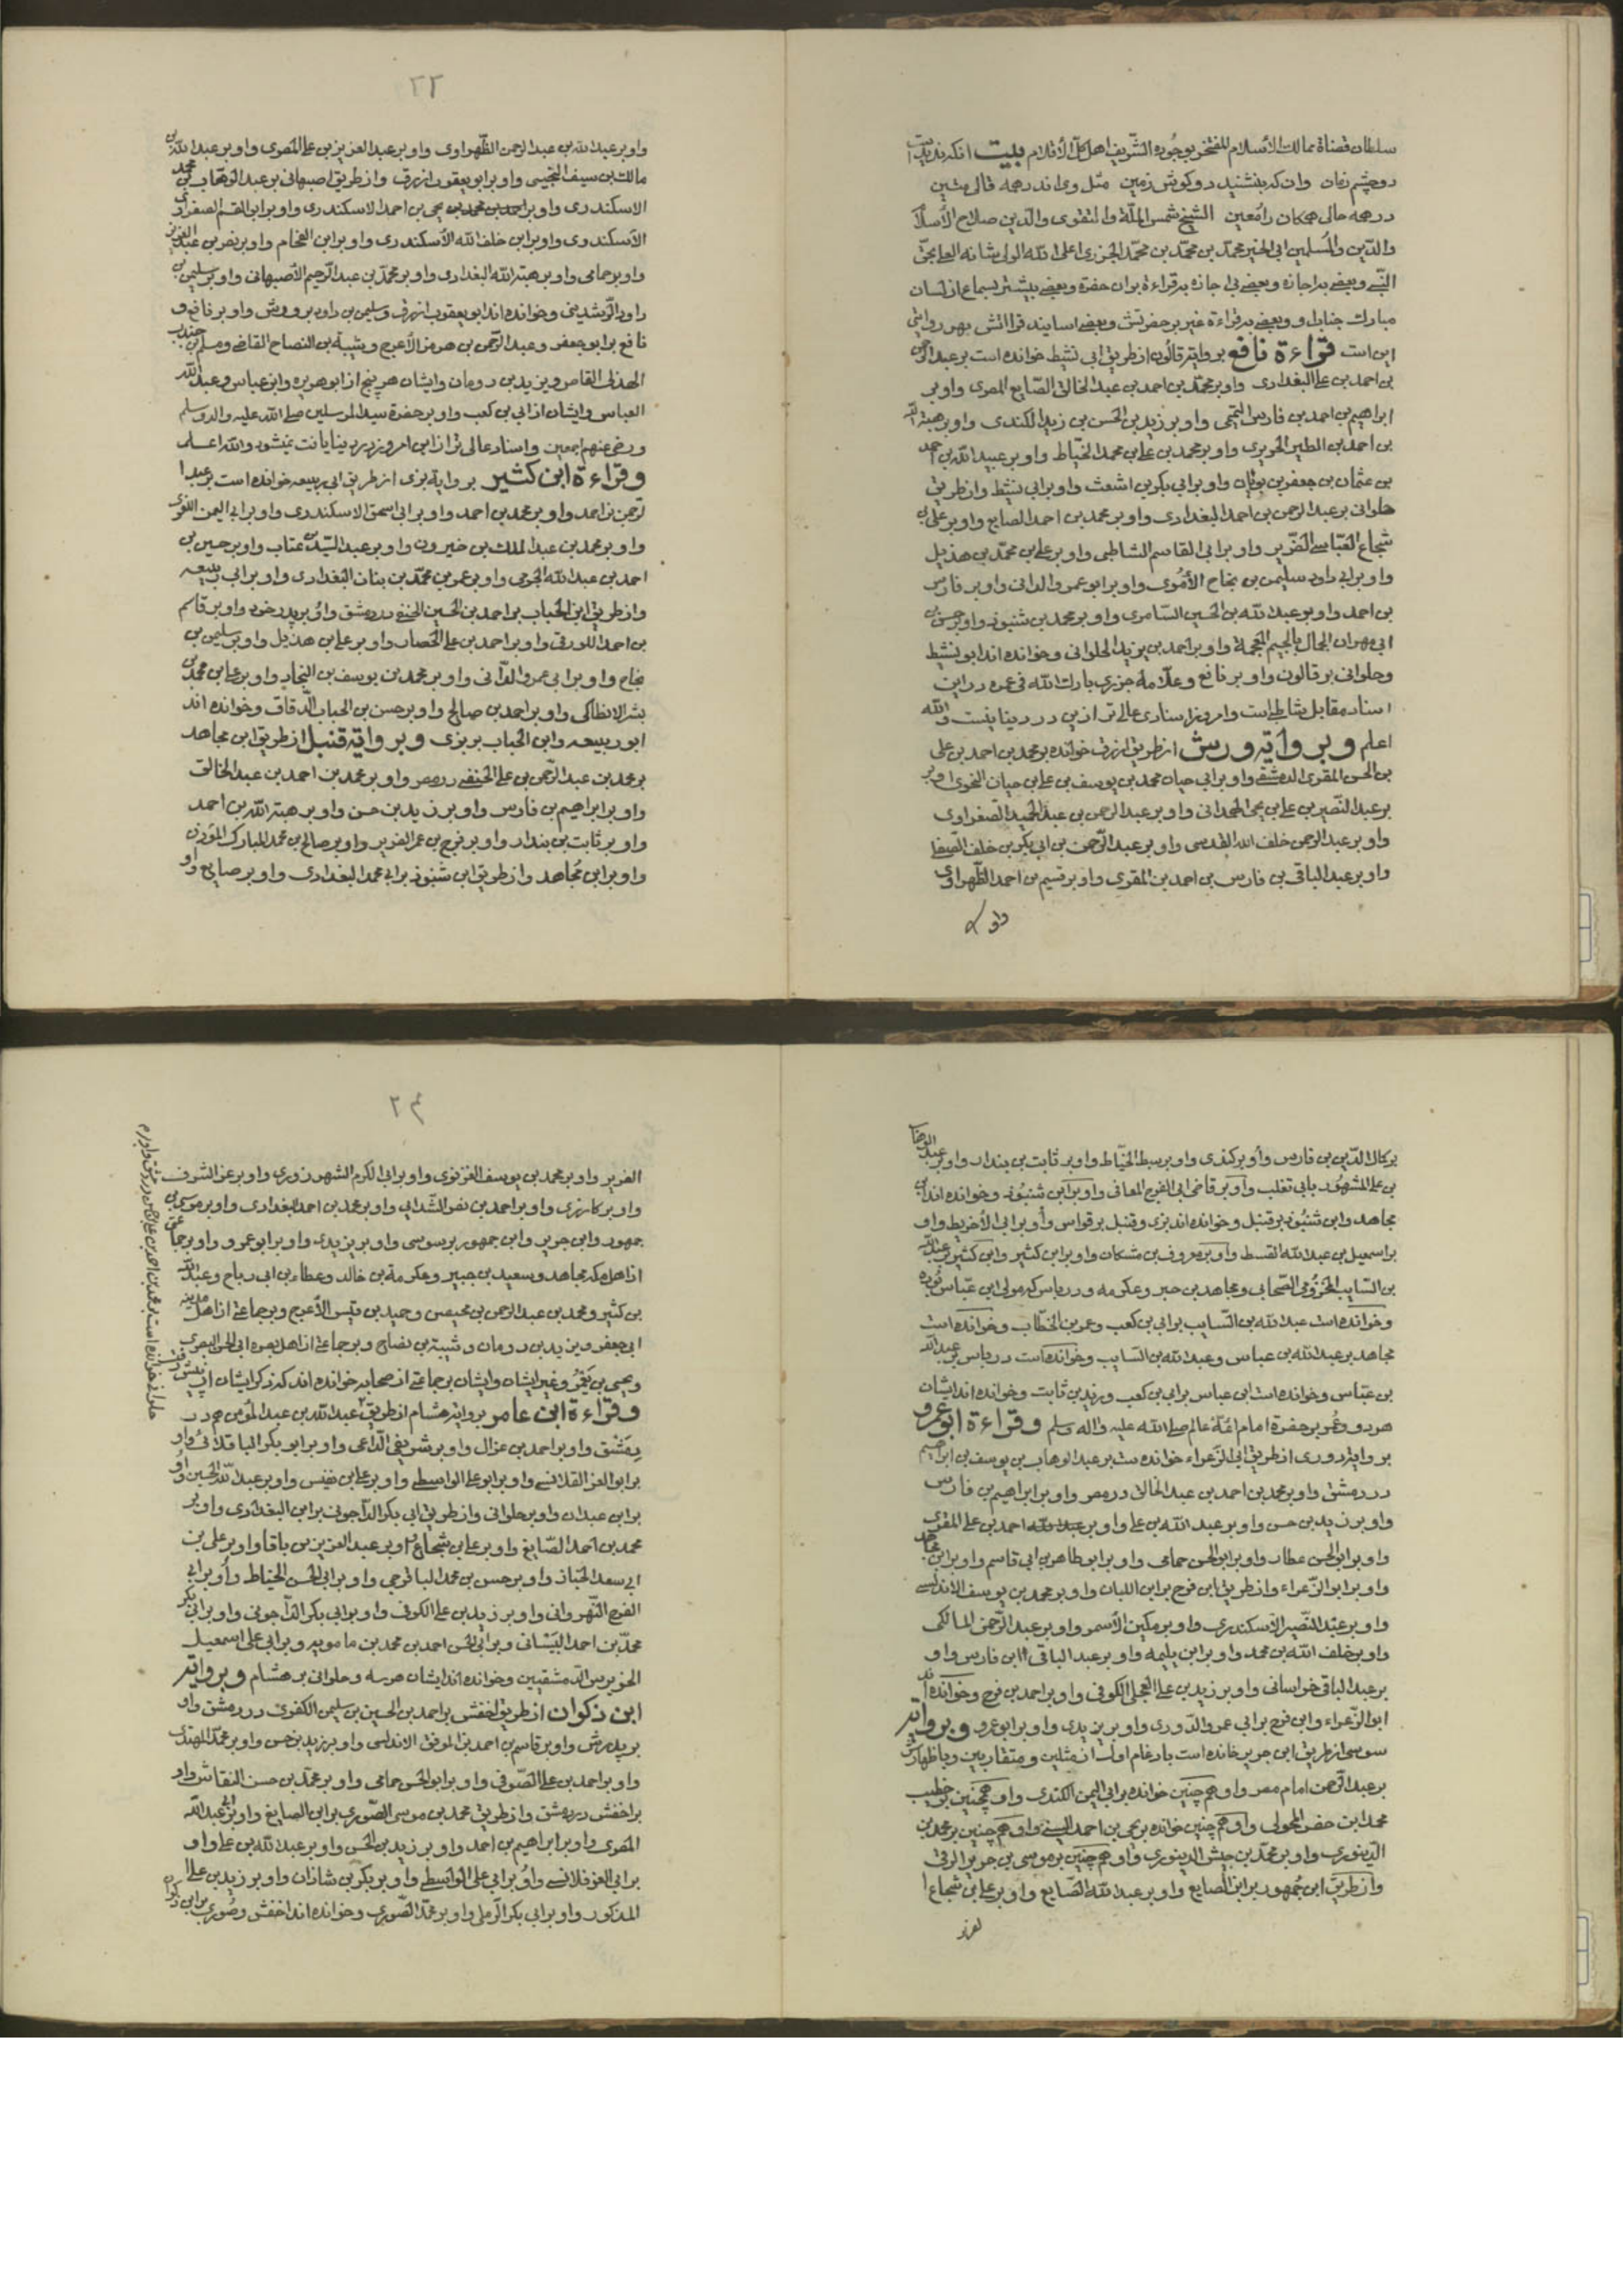 سلطان قضاة ممالك الأسلام المفتخر بوجوده الشريف اهل كل الأقلام بیت آنكه ندیدست
دو چشم زمان وانكه بنشنید دو كوش زمین مثل وی اندر همه
در همه حالی همكان را معین الشیخ شمس الملّة والتقوی والدّین صلاح الأسلام
والدّین والمسلمین ابی الخیر محمد بن محمّد بن محمّد الجزری اعلی الله الولی شانه العلی بحق
النّبی وبعضی باجازه وبعضی بی اجازه بقراءة بران حضرة وبعضی بیشتر بسماع از لسان
مبارك جناب او وبعضی بقراءة غیر بر حضرتش وبعضی اسانید قرااتش بهر روایتی
این است قراءة نافع بروایة قالون از طریق ابی نشیط خوانده است بر عبد الرحمن
بن احمد بن علی البغدادی واو بر محمّد بن احمد بن عبد الخالق الصّایغ المصری واو بر
ابراهیم بن احمد بن فارس التمیمی واو بر زید بن الحسن بن زید الكندی واو بر هبة الله
بن احمد بن الطبر الحریری واو بر محمد بن علی بن محمد الخیّاط واو بر عبید الله بن احمد
بن عثمان بن جعفر بن بویان واو بر ابی بكر بن اشعث واو بر ابی نشیط واز طریق
حلوانی بر عبد الرحمن بن احمد البغدادی واو بر محمد بن احمد الصایغ واو بر علی بن
شجاع العبّاسی الضّریر واو بر ابی القاسم الشاطبی واو بر علی بن محمّد بن هذیل
واو بر ابی داود سلیمن بن نجاح الأموی واو بر ابو عمرو الدانی واو بر فارس
بن احمد واو بر عبد الله بن الحسین السّامری واو بر محمد بن شنبوذ واو بر حسن بن
ابی مهران الجمال بالجیم المعجمة واو بر احمد بن یزید الحلوانی وخوانده اند ابو نشیط
وحلوانی بر قالون واو بر نافع وعلّامه جزری بارك الله فی عمره در این
اسناد مقابل شاطبی است وامروز اسنادی عالی تر از این در دنیا نیست والله
اعلم وبروایة ورش از طریق ازرق خوانده بر محمد بن احمد بن علی
بن الحسن المقری الدمشقی واو بر ابی حیان محمد بن یوسف بن علی بن حیان النحوی واو بر
بر عبد النّصیر بن علی بن یحیی الهمدانی واو بر عبد الرحمن بن عبد الحمید الصّفراوی
واو بر عبد الرحمن خلف الله القدسی واو بر عبد الرّحمن بن ابی بكر بن خلف الصّقلی
واو بر عبد الباقی بن فارس بن احمد بن المقری واو بر قسیم بن احمد الظهراوی
واو بر
٢٣
واو بر عبد الله بن عبد الرحمن الظّهراوی واو بر عبد العزیز بن علی المصری واو بر عبد الله بن
مالك بن سیف التجیبی واو بر ابو یعقوب ازرق واز طریق اصبهانی بر عبد الوهّاب بن محمد
الاسكندری واو بر احمد بن محمد بن یحیی بن احمد الاسكندری واو بر ابو القسم الصفراوی
الأسكندری واو بر ابن خلف الله الأسكندری واو بر ابن الفحام واو بر نصر بن عبد العزیز
واو بر حمامی واو بر هبة الله البغدادی واو بر محمّد بن عبد الرّحیم الأصبهانی واو بر سلیمن بن
داود الرّشدینی وخوانده اند ابو یعقوب ازرق وسلیمن بن داود بر ورش واو بر نافع و
نافع بر ابو جعفر وعبد الرّحمن بن هرمز الأعرج وشیبة بن النصاح القاضی ومسلم بن جندب
الهذلی القاص ویزید بن رومان وایشان هر پنج از ابو هریره وابن عباس وعبد الله
العباس وایشان از ابی بن كعب واو بر حضرة سید المرسلین صلی الله علیه واله وسلم
ورضی عنهم اجمعین واسناد عالی تر از این امروز در دنیا یافت نمیشود والله اعلم
وقراءة ابن كثیر بروایة بزی از طریق ابی ربیعه خوانده است بر عبد ا
لرّحمن بن احمد واو بر محمد بن احمد واو بر ابی اسحق الاسكندری واو بر ابی الیمن اللغوی
واو بر محمد بن عبد الملك بن خیرون واو بر عبد السّید بن عتاب واو بر حسین بن
احمد بن عبد الله الحربی واو بر عمر بن محمّد بن بنان البغدادی واو بر ابی ربیعه
واز طریق ابن الحباب بر احمد بن الحسین الحنفی در دمشق واو بر پدر خود واو بر قاسم
بن احمد اللورقی واو بر احمد بن علی الحصار واو بر علی بن هذیل واو بر سلیمن بن
نجاح واو بر ابی عمرو الدّانی واو بر محمد بن یوسف بن النجاد واو بر علی بن محمد بن
بشر الانطاكی واو بر احمد بن صالح واو بر حسن بن الحباب الدّقاق وخوانده اند
ابو ربیعه وابن الحباب بر بزی وبروایة قنبل از طریق ابن مجاهد
بر محمد بن عبد الرّحمن بن علی الحنفی در مصر واو بر محمد بن احمد بن عبد الخالق
واو بر ابراهیم بن فارس واو بر زید بن حسن واو بر هبة الله بن احمد
واو بر ثابت بن بندار واو بر فرج بن عمر الضریر واو بر صالح بن محمد المبارك المؤدّن
واو بر ابن مُجاهد واز طریق ابن شنبوذ بر ابی محمد البغدادی واو بر صایغ واو
بر كمال الدّین بن فارس واو بر كندی واو بر سبط الخیّاط واو بر ثابت بن بندار واو بر عبد الوهّاب
بن علی المشهور بابی تغلب واو بر قاضی ابی الفرج المعافی واو بر ابن شنبُوذ وخوانده اند ابن
مجاهد وابن شنبُوذ بر قنبل وخوانده اند بزی وقنبل بر قواس واو بر ابی الأخریط واو
بر اسمعیل بن عبد الله القسط واو بر معروف بن مشكان واو بر ابن كثیر وابن كثیر بر عبد الله
بن السّایب المخزومی الصّحابی ومجاهد بن جبر وعكرمه ودرباس كه مولی ابن عبّاس بوده
وخوانده است عبد الله بن السّایب بر ابی بن كعب وعمر بن الخطّاب وخوانده است
مجاهد بر عبد الله بن عباس وعبد الله بن السّایب وخوانده است درباس بر عبد الله
بن عبّاس وخوانده است ابن عباس بر ابی بن كعب وزید بن ثابت وخوانده اند ایشان
هر دو وعُمر بر حضرة امام ائمّهٔ عالم صلی الله علیه واله وسلم وقراءة ابو عمرو
بروایة دوری از طریق ابی الزّعراء خوانده ست بر عبد الوهاب بن یوسف بن ابراهیم
در دمشق واو بر محمد بن احمد بن عبد الخالق در مصر واو بر ابراهیم بن فارس
واو بر زید بن حسن واو بر عبد الله بن علی واو بر عبد الله احمد بن علی المقری
واو بر ابو الحسن عطار واو بر ابو الحسن حمامی واو بر ابو طاهر بن ابی قاسم واو بر ابن مجاهد
واو بر ابو الزّعراء واز طریق ابن فرح بر ابن اللبان واو بر محمد بن یوسف الاندلسی
واو بر عبد النّصیر الأسكندری واو بر مكین الأسمر واو بر عبد الرّحمن المالكی
واو بر خلف الله بن محمد واو بر ابن بلیمه واو بر عبد الباقی ابن فارس واو
بر عبد الباقی خراسانی واو بر زید بن علی العجلی الكوفی واو بر احمد بن فرح وخوانده اند
ابو الزّعراء وابن فرح بر ابی عمرو الدّوری واو بر یزیدی واو بر ابو عمرو وبروایة
سوسی از طریق ابن جریر خوانده است بادغام اولست از مثلین ومتقاربین وباظهارش
بر عبد الرّحمن امام مصر واو هم چنین خوانده بر ابی الیمن الكندی واو همچنین بر خطیب
محمد ابن خضر المحولی واو هم چنین خوانده بر یحیی بن احمد السیبی واو هم چنین بر محمد بن
الدّینوری واو بر محمّد بن حبش الدینوری واو هم چنین بر موسی بن جریر الرقی
واز طریق ابن جُمهور بر ابن الصایغ واو بر عبد الله الصّایغ واو بر علی بن شجاع ا
لضریر
٢٤
الضریر واو بر محمد بن یوسف الغزنوی واو بر ابی الكرم الشهرزوری واو بر عز الشرف
واو بر كارزی واو بر احمد بن نصر الشّذایی واو بر محمد بن احمد البغدادی واو بر موسی بن
جمهور وابن جریر وابن جمهور بر سوسی واو بر یزیدی واو بر ابو عمرو واو بر جماعتی
از اهل مكه مجاهد وسعید بن جبیر وعكرمة بن خالد وعطاء بن ابی رباح وعبد الله
بن كثیر ومحمد بن عبد الرحمن بن محیصن وحمید بن قیس الأعرج وبر جماعتی از اهل مدینه
ابی جعفر ویزید بن رومان وشیبة بن نصاح وبر جماعتی از اهل بصره ابی الحسن البصری
ویحیی بن یَعْمُر وغیر ایشان وایشان بر جماعتی از صحابه خوانده اند كه ذكر ایشان از پیش رفت
وقراءة ابن عامر بروایة هشام از طریق عبد الله بن عبد المؤمن در
دِمَشْق واو بر احمد بن غزال واو بر شریف الدّاعی واو بر ابو بكر الباقلانی واو
بر ابو العز القلانسی واو بر ابو علی الواسطی واو بر علی بن خنیس واو بر عبد الله الحسین واو
بر ابن عبدان واو بر حلوانی واز طریق ابی بكر الدّاجونی بر ابن البغدادی واو بر
محمد بن احمد الصّایغ واو بر علی بن شجاع واو بر عبد العزیز بن باقا واو بر علی بن
ابی سعد الخباز واو بر حسن بن محمد الباقرحی واو بر ابی الحسن الخیاط واو بر ابی
الفرج النّهروانی واو بر زید بن علی الكوفی واو بر ابی بكر الدّاجونی واو بر ابی بكر
محمّد بن احمد البیسانی وبر ابی الحسن احمد بن محمد بن مامویه وبر ابی علی اسمعیل
الحویرس الدّمشقیین وخوانده اند ایشان هر سه وحلوانی بر هشام وبروایة
ابن ذكوان از طریق اخفش بر احمد بن الحسین بن سلیمن الكفری در دمشق واو
بر پدرش واو بر قاسم بن احمد بن الموفق الاندلسی واو بر زید بن حسن واو بر محمّد المهتدی
واو بر احمد بن علی الصّوفی واو بر ابو الحسن حمامی واو بر محمّد بن حسن النقاش واو
بر اخفش در دمشق واز طریق محمد بن موسی الصّوری بر ابن الصایغ واو بر ابی عبد الله
المصری واو بر ابراهیم بن احمد واو بر زید بن الحسن واو بر عبد الله بن علی واو
بر ابی العز قلانسی واو بر ابی علی الواسطی واو بر بكر بن شاذان واو بر زید بن علی ا
المذكور واو بر ابی بكر الرّملی واو بر محمّد الصّوری وخوانده اند اخفش وصُوری بر ابن ذكوان